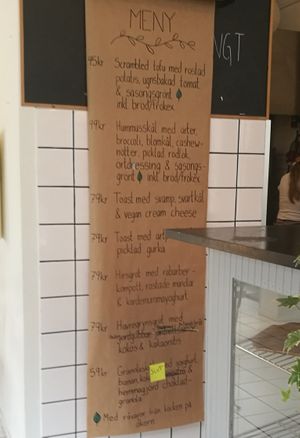 MENY
NGT
95kr Scrambled tofu med rostad
potatis, ugnsbakad tomat
& säsongsgrönt
inkl bröd/fröknäcke
99kr Hummusskål med ärter,
broccoli, blomkål, cashew-
nötter, picklad rödlök,
örtdressing & säsongs-
grönt inkl bröd/
79kr Toast med svamp, svartkål
& vegan cream cheese
79kr Toast med
picklad gurka
79kr Hirsgröt med rabarber-
kompott, rostade mandlar
& kardemummayoghurt
79kr Havregrynsgröt med
kokos & kakaonibs
59kr Granola med yoghurt,
banan, &
hemmagjord choklad-
granola
Med råvaror från